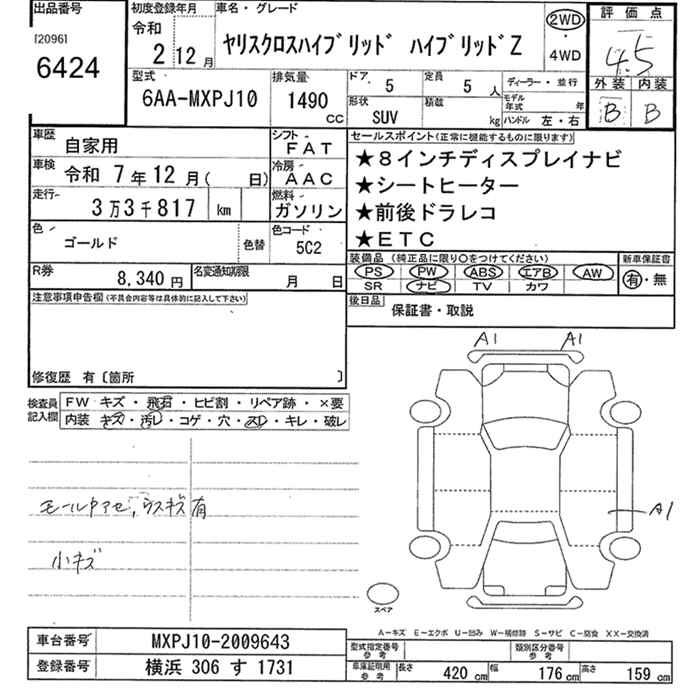 出品番号
[2096]
6424
初度登録年月
令和
2年12月
車名・グレード
ヤリスクロスハイブリッド ハイブリッドZ
2WD
・
4WD
評価点
4.5
外装 内装
B B
型式
6AA-MXPJ10
排気量
1490
CC
ドア 5
形状 SUV
定員 5人
積載 kg
ディーラー・並行
モデル年式 年
ハンドル 左・右
車歴 自家用
シフト FAT
車検 令和 7年12月( 日)
冷房 AAC
走行 3万3千817 km
燃料 ガソリン
色 ゴールド
色替
色コード 5C2
R券 8,340円
名変通知期限 月 日
セールスポイント(正常に機能するものに限ります)
★8インチディスプレイナビ
★シートヒーター
★前後ドラレコ
★ETC
装備品(純正品に限り○をつけてください)
PS PW ABS エアB AW
SR ナビ TV カワ
新車保証書
有・無
後日品 保証書・取説
注意事項申告欄(不具合内容等は具体的に記入して下さい)
修復歴 有〔箇所 〕
検査員記入欄
FW キズ・飛石・ヒビ割・リペア跡・×要
内装 キズ・汚レ・コゲ・穴・スレ・キレ・破レ
モールケアセ,ラスキズ有
小キズ
A1 A1
A1
スペア
A-キズ E-エクボ U-凹み W-補修跡 S-サビ C-腐食 XX-交換済
車台番号 MXPJ10-2009643
登録番号 横浜 306 す 1731
型式指定番号 参考
類別区分番号 参考
車庫証明用 参考
長さ 420 cm 幅 176 cm 高さ 159 cm